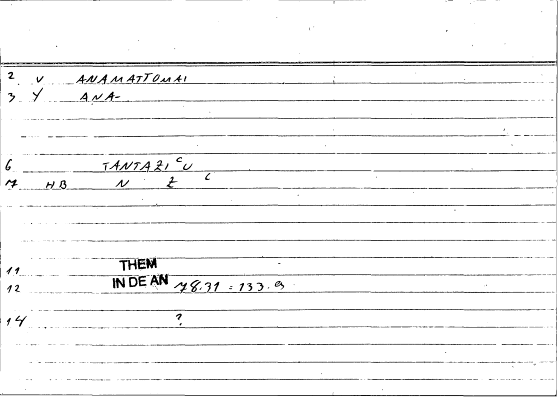 2 V ANAMATTOMAI
3 Y ANA-
6 TANTAZI C U
7 HB N Z C
11 THEM
12 IN DE AN 78.31 = 133.9
14 ?